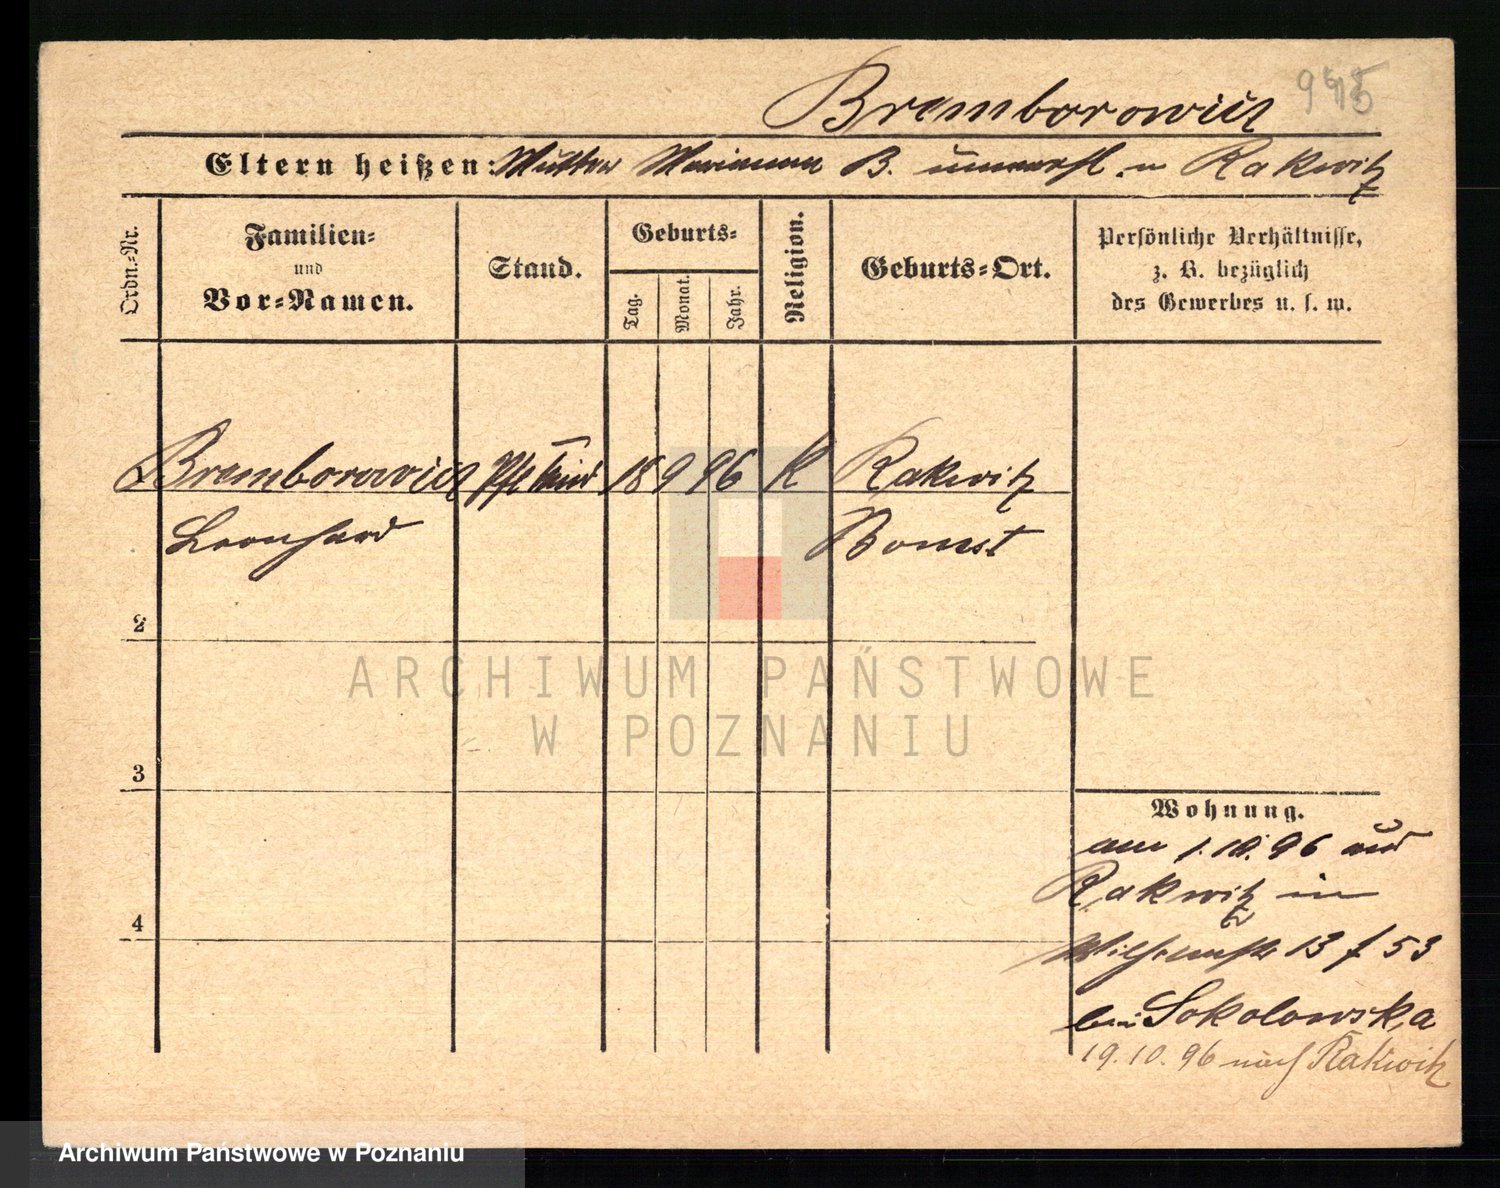 Bremborowicz 945
Eltern heißen: Mutter Marianna B. unverehl. in Rakwitz
Ordn.-Nr.
Familien-
und
Vor-Namen.
Stand.
Geburts-
Tag.
Monat.
Jahr.
Religion.
Geburts-Ort.
Persönliche Verhältnisse,
z. B. bezüglich
des Gewerbes u. s. w.
Bremborowicz Pfl Kind 18 9 96 K Rakwitz
Leonhard Bomst
2
3
4
Wohnung.
am 1.10.96 aus
Rakwitz in
13 53
bei Sokolowska
19.10.96 nach Rakwitz
ARCHIWUM PAŃSTWOWE
W POZNANIU
Archiwum Państwowe w Poznaniu